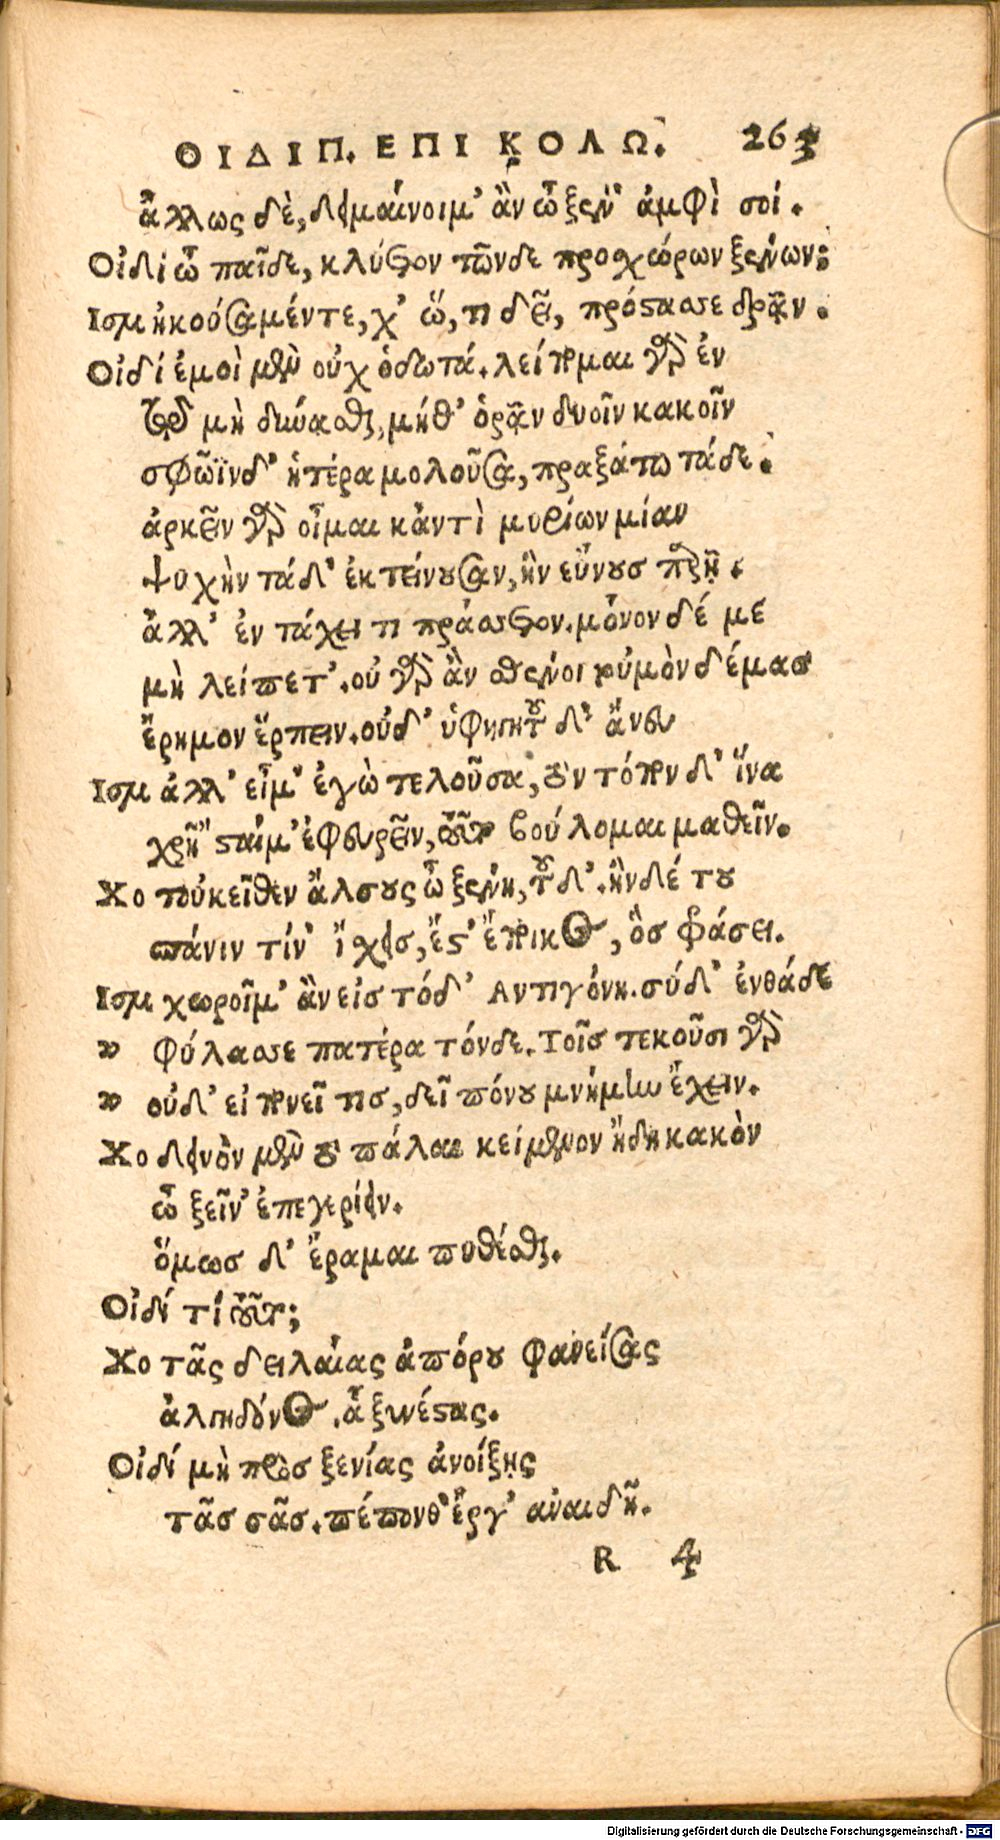 ΟΙΔΙΠ. ΕΠΙ ΚΟΛΩ. 263
ἄλλως δὲ, δειμαίνοιμ' ἂν ὦ ξέν' ἀμφὶ σοί.
Οἰδί ὦ παῖδε, κλύετον τῶνδε προχώρων ξένων;
Ισμ ἠκούσαμέν τε, χ' ὥ, τι δεῖ, πρόστασσε δρᾶν.
Οἰδί ἐμοὶ μὲν οὐχ ὁδωτά. λείπομαι γὰρ ἐν
τῷ μὴ δύνασθαι, μήθ' ὁρᾶν δυοῖν κακοῖν
σφῶϊν δ' ἡτέρα μολοῦσα, πραξάτω τάδε.
ἀρκεῖν γὰρ οἶμαι κἀντὶ μυρίων μίαν
ψυχὴν τάδ' ἐκτείνουσαν, ἢν εὔνους παρῇ.
ἀλλ' ἐν τάχει τι πράσσετον. μόνον δέ με
μὴ λείπετ'. οὐ γὰρ ἂν σθένοι τοὐμὸν δέμας
ἔρημον ἕρπειν. οὐδ' ὑφηγητοῦ δ' ἄνευ
Ισμ ἀλλ' εἶμ' ἐγὼ τελοῦσα, τὸν τόπον δ' ἵνα
χρῆ σταίμ' ἐφευρεῖν, τοῦτο βούλομαι μαθεῖν.
Χο τοὐκεῖθεν ἄλσους ὦ ξένη, τοῦδ'. ἢν δέ του
σπάνιν τίν' ἴχεις, ἔστ' ἔποικος, ὃς φάσει.
Ισμ χωροῖμ' ἂν εἰς τόδ' Αντιγόνη. σύ δ' ἐνθάδε
» φύλασσε πατέρα τόνδε. τοῖς τεκοῦσι γὰρ
» οὐδ' εἰ πονεῖ τις, δεῖ πόνου μνήμην ἔχειν.
Χο δεινὸν μὲν τὸ πάλαι κείμενον ἤδη κακὸν
ὦ ξεῖν' ἐπεγερίειν.
ὅμως δ' ἔραμαι πυθέσθαι.
Οἰδί τί τοῦτο;
Χο τᾶς δειλαίας ἀπόρου φανείσας
ἀλγηδόνος. ἇ ξυνέστας.
Οἰδί μὴ πρὸς ξενίας ἀνοίξῃς
τᾶς σᾶς. πέπονθ' ἔργ' αναιδῆ.
R 4
Digitalisierung gefördert durch die Deutsche Forschungsgemeinschaft - DFG